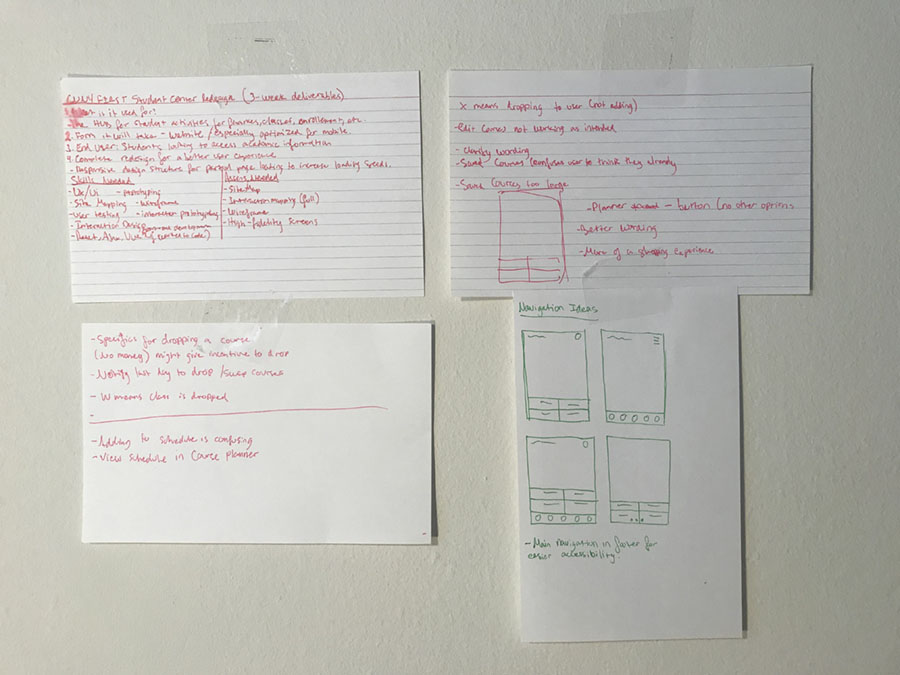 CUNY FIRST Student Center Redesign (3-week deliverables)
is it used for:
The HUB for student activities for finances, classes, enrollment, etc.
2. Form it will take - Website / especially optimized for mobile.
3. End User: Students looking to access academic information
4. Complete redesign for a better user experience
- Responsive design structure for page loading to increase loading speeds.
Skills Needed
- UX/UI - prototyping
- Site Mapping - wireframe
- User testing - interaction prototyping
- Interaction Design
Assets Needed
- Site Map
- Interaction (full)
- Wireframe
- High-fidelity Screens
X means dropping to user (not adding)
- edit comes not working as intended
- clarify wording
- Same courses confuses user to think they already
- Same Courses too large
- Planner - button (no other options
- Better wording
- More of a shopping experience
- Specifics for dropping a course
(No money) might give incentive to drop
- Notify last day to drop / swap courses
- W means class is dropped
-
- Adding to schedule is confusing
- View schedule in Course planner
Navigation Ideas
- Main navigation in footer for
easier accessibility.